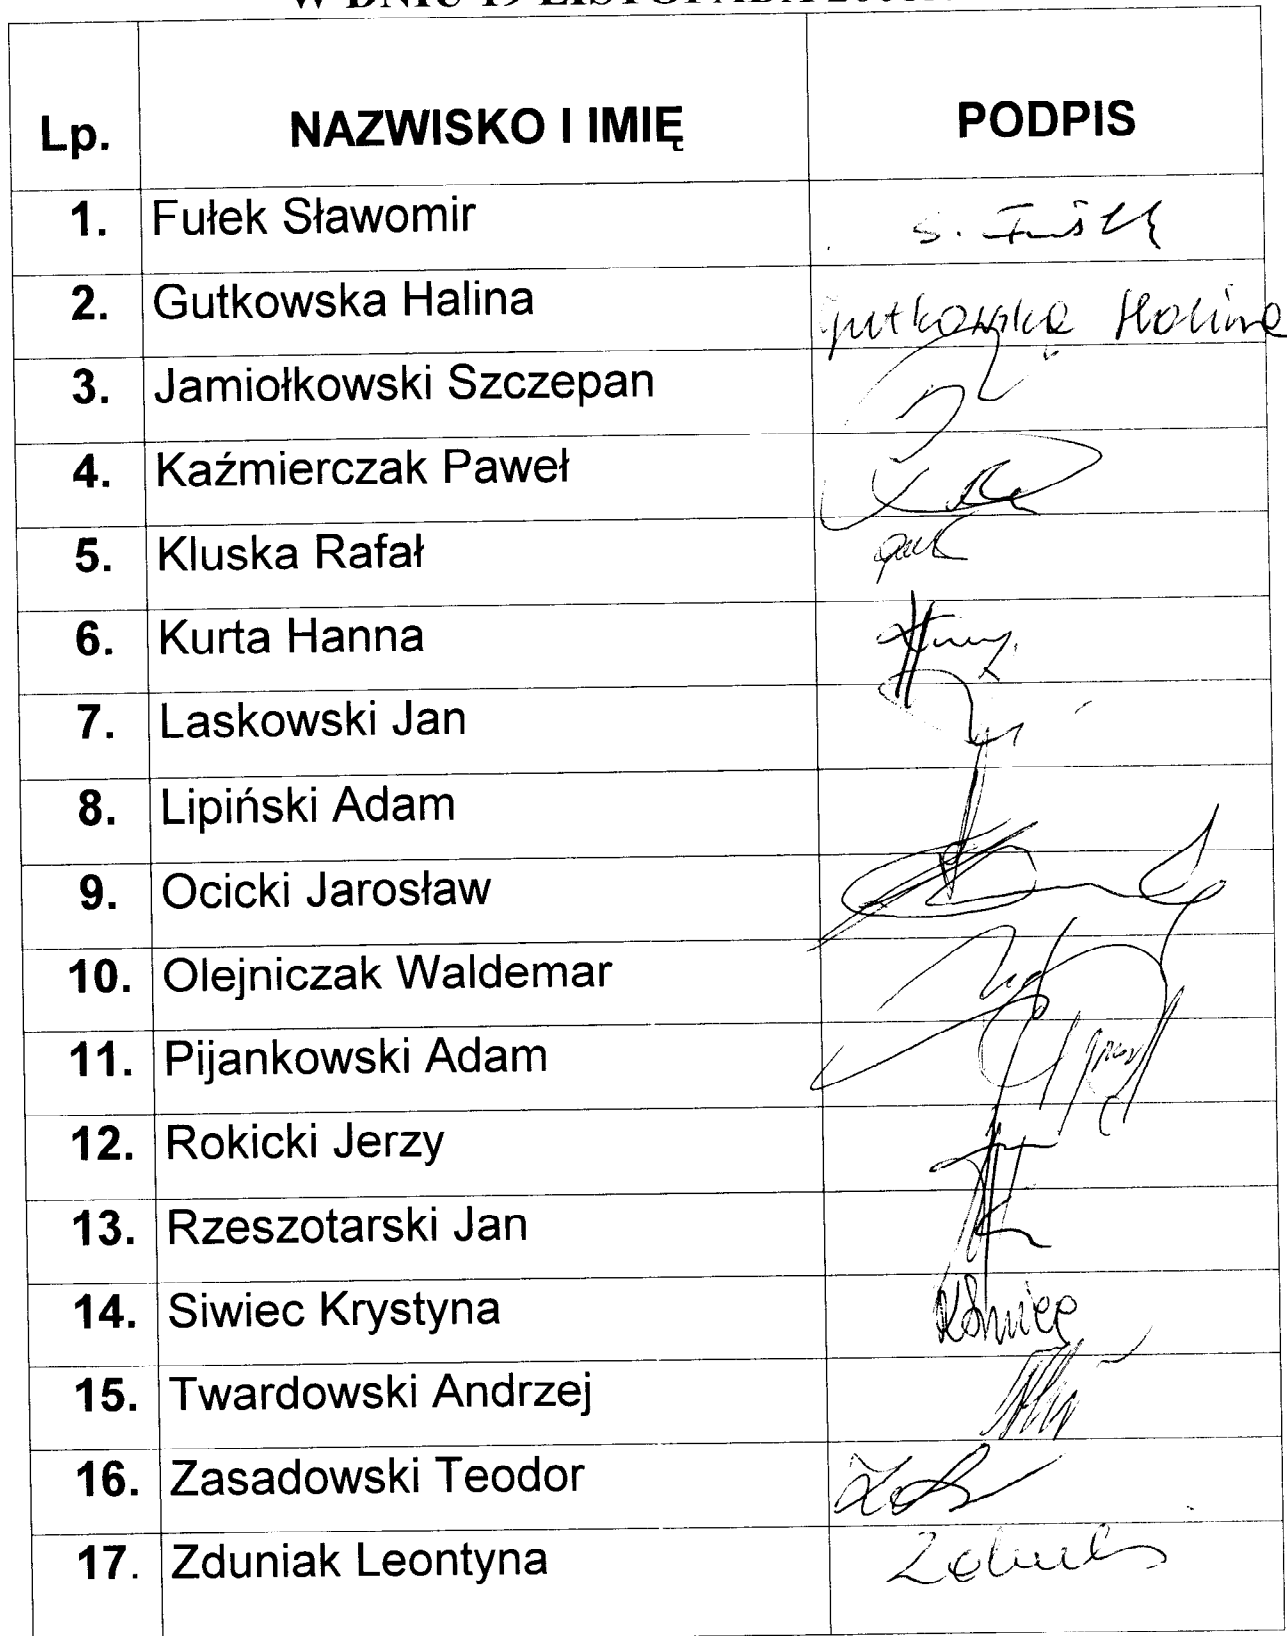 W DNIU 19 LISTOPADA
Lp. NAZWISKO I IMIĘ PODPIS
1. Fułek Sławomir S. Fułek
2. Gutkowska Halina Gutkowska Halina
3. Jamiołkowski Szczepan
4. Kaźmierczak Paweł
5. Kluska Rafał
6. Kurta Hanna
7. Laskowski Jan
8. Lipiński Adam
9. Ocicki Jarosław
10. Olejniczak Waldemar
11. Pijankowski Adam
12. Rokicki Jerzy
13. Rzeszotarski Jan
14. Siwiec Krystyna KSiwiec
15. Twardowski Andrzej
16. Zasadowski Teodor
17. Zduniak Leontyna